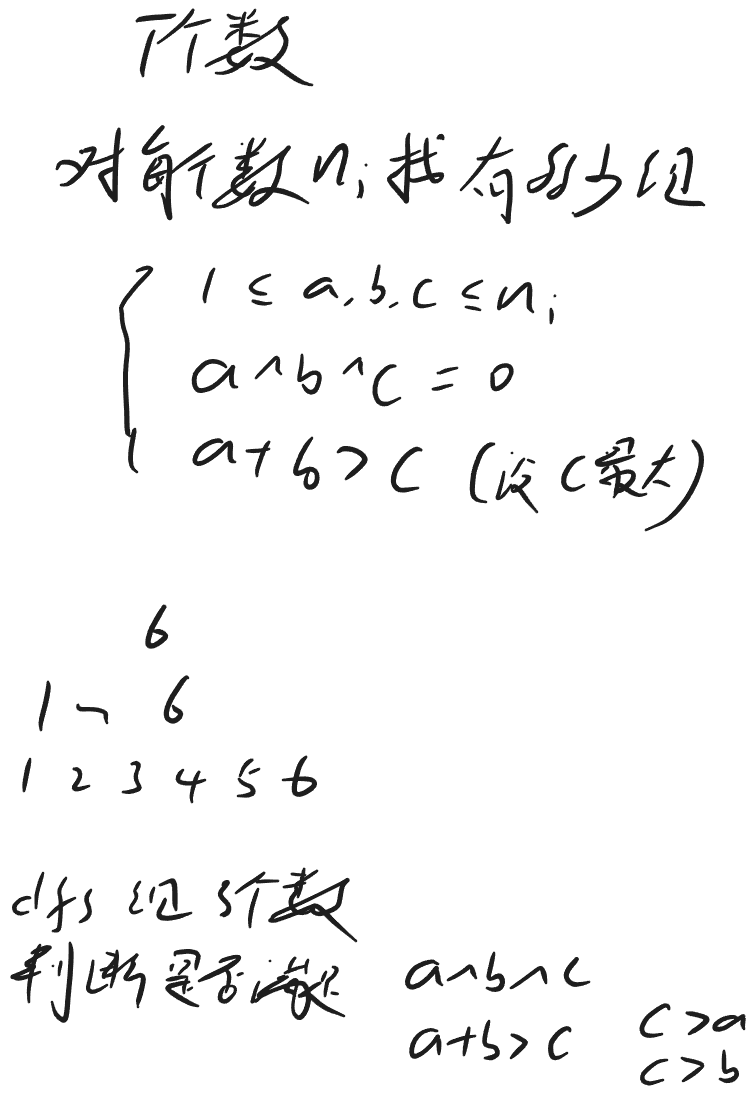 T个数
对每个数nᵢ找有多少组
1 ≤ a,b,c ≤ nᵢ
a^b^c = 0
a+b>c (设c最大)
6
1~6
1 2 3 4 5 6
dfs 组 3个数
判断是否满足 a^b^c
a+b>c c>a
c>b